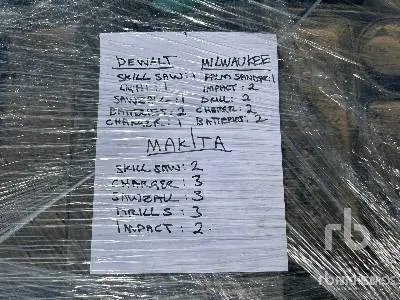 DEWALT
SKILL SAW: 1
LIGHT: 1
SAWZALL: 1
BATTERIES: 2
CHARGER: 1
MILWAUKEE
PALM SANDER: 1
IMPACT: 2
DRILL: 2
CHARGER: 2
BATTERIES: 2
MAKITA
SKILL SAW: 2
CHARGER: 3
SAWZALL: 3
DRILLS: 3
IMPACT: 2
rb